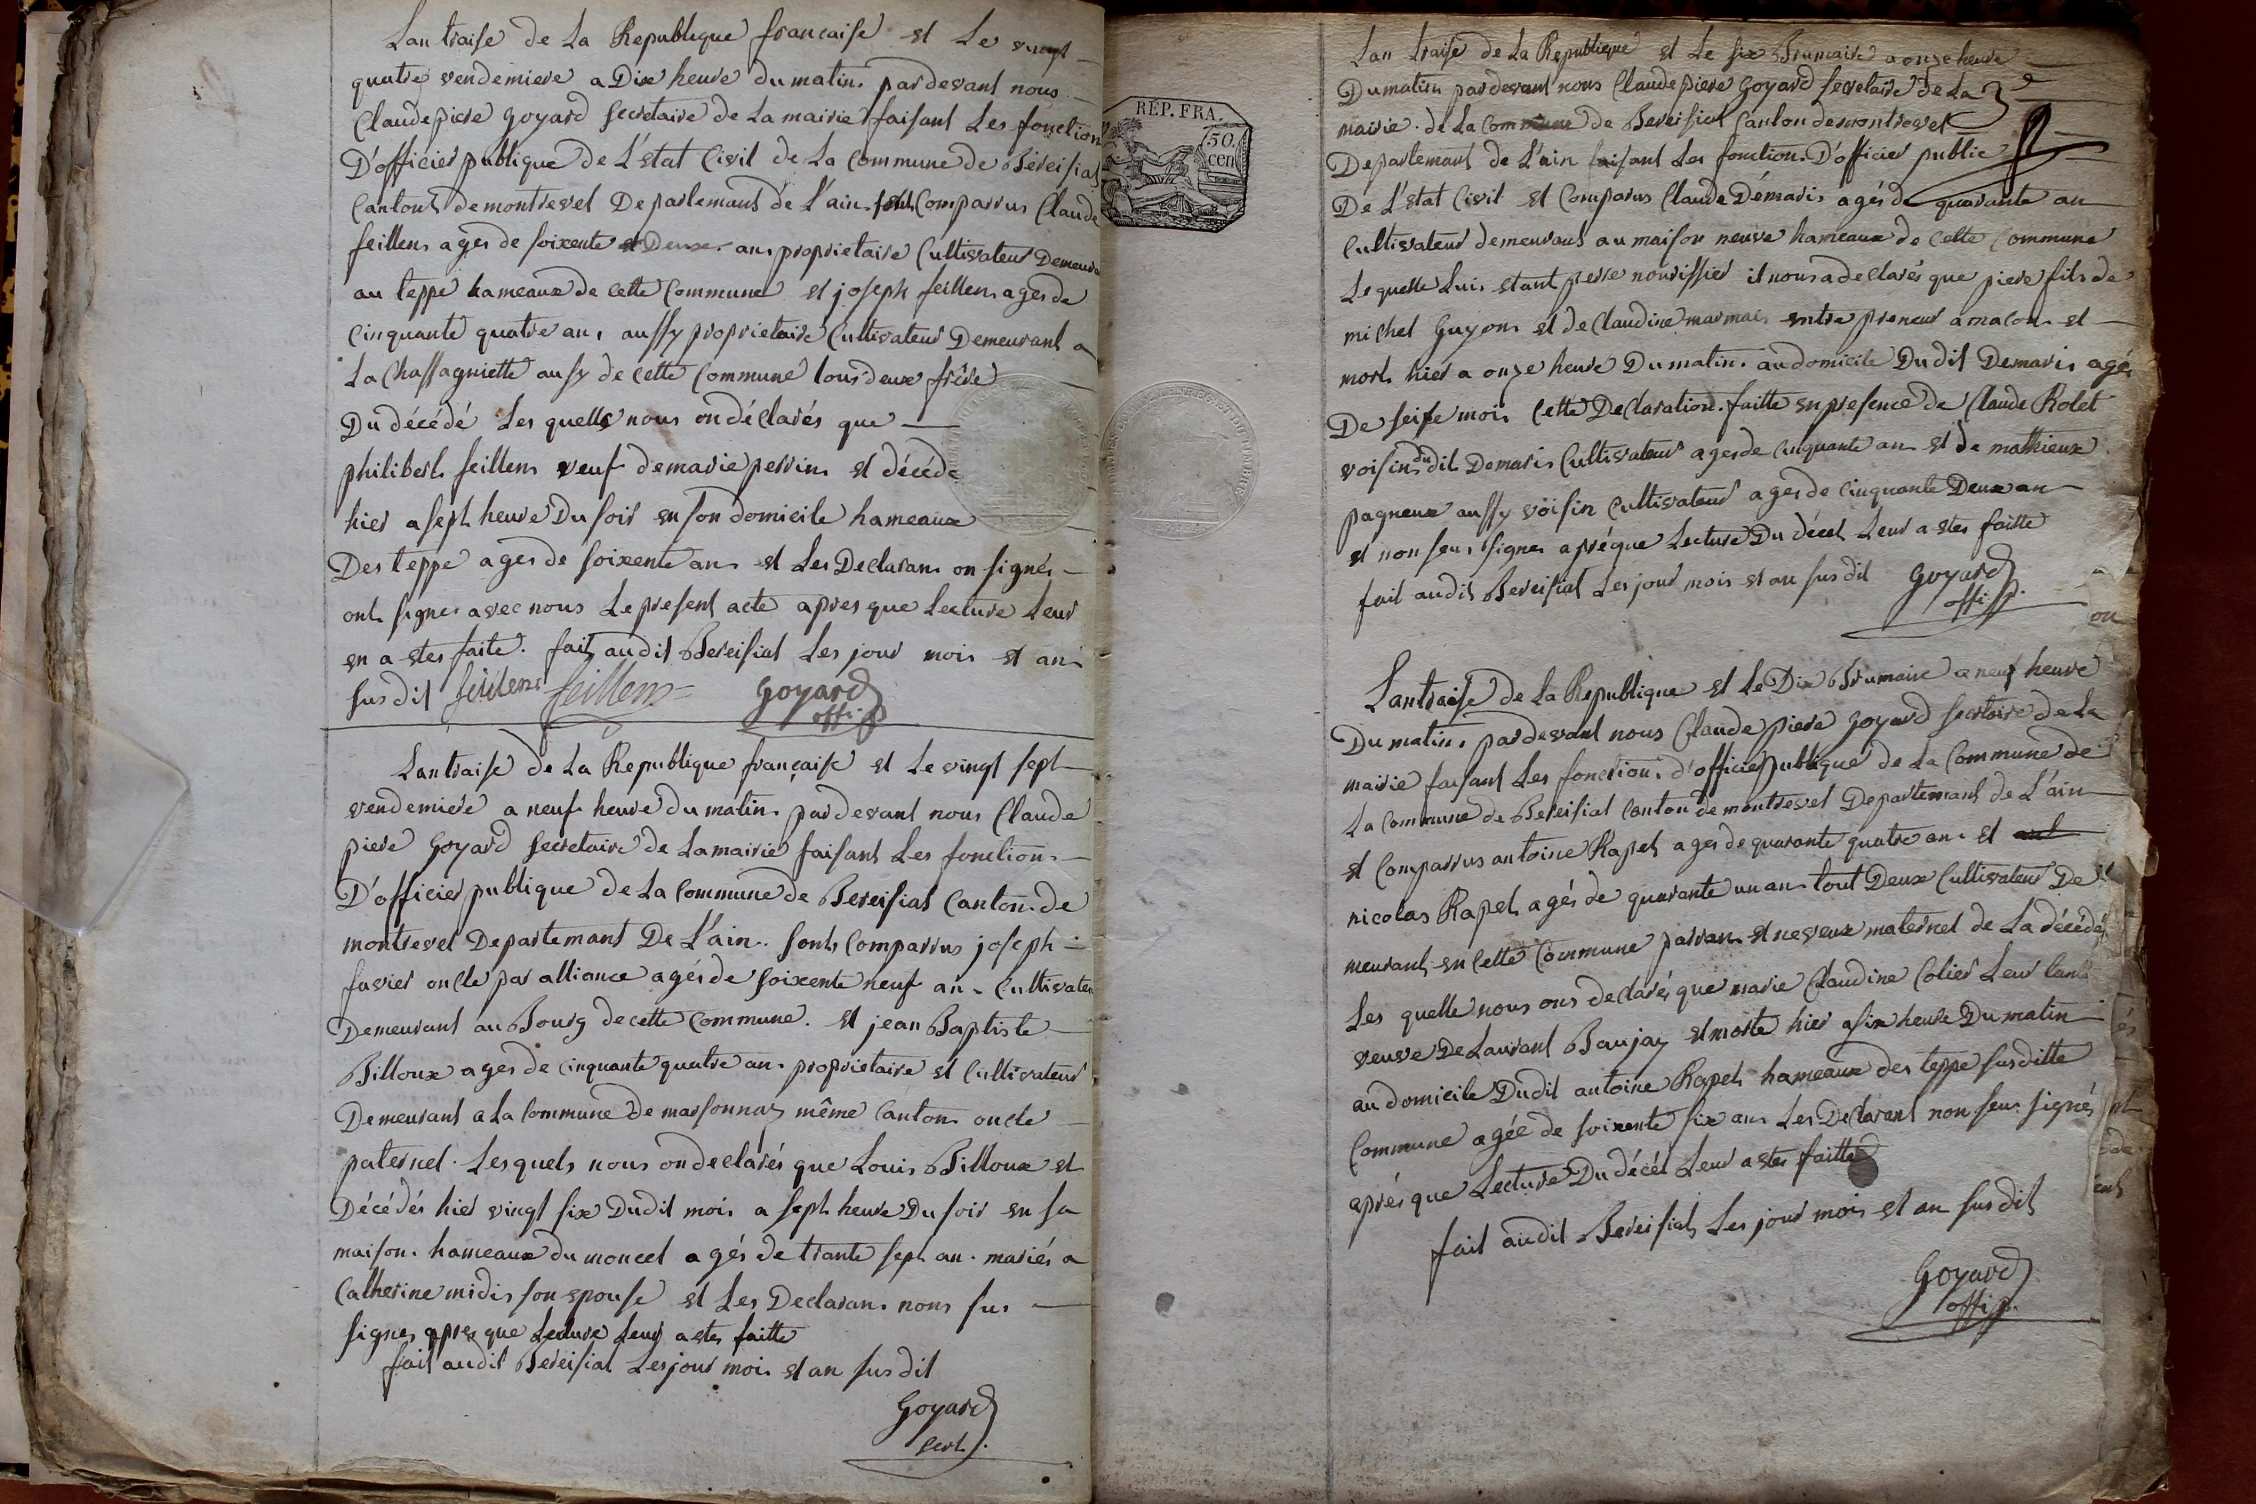 Lan traise de La Republique francaise et Le vingt
quatre vendemiere a Dix heure du matin. par devant nous
Claude piere Goyard Secretaire de La mairie faisant Les fonction
D'officier publique de L'etat Civil de La Commune de Bereisiat
Canton de montrevel Departemant de L'ain. sont Comparrus Claude
feillens ages de soixente et Deuxe ans proprietaire Cultivateur Demeura
au teppe hameaux de cette Commune et joseph feillens ages de
Cinquante quatre ans aussy proprietaire Cultivateur Demeurant a
La Chassagniette ausy de cette Commune tous deux frère
Du décédé Les quelle nous on déclarés que
philibert feillens veuf de marie perrin et décéde
hier a sept heure Du soir en son domicile hameaux
Des teppe ages de soixente ans et Les Declarans on signés
ont signes avec nous Le present acte apres que Lecture Leur
en a etes faite. fait audit Bereisiat Les jour mois et an
sus dit feillens feillens Goyard
offi. p.
Lan traise de La Republique française et Le vingt sept
vendemiere a neuf heure du matin. par devant nous Claude
piere Goyard Secretaire de La mairie faisant Les fonction.
D'officier publique de La Commune de Bereisiat Canton de
montrevel Departemant De L'ain. sont Comparrus joseph
favier oncle par alliance agés de soixente neuf an. Cultivateu
Demeurant au Bourg de cette Commune. et jean Baptiste
Billoux ages de cinquante quatre an. proprietaire et Cultivateur
Demeurant a La Commune de marsonnaz même Canton oncle
paternel. Les quels nous on declarés que Louis Billoux et
Décédés hier vingt six Dudit mois a sept heure Du soir en sa
maison. hameaux du moncel agés de trante sept an. mariés a
Catherine midis son epouse et Les Declarans nons sus
signes apres que Lecture Leur a etes faitte
fait audit Bereisiat Les jour mois et an sus dit
Goyard
secrt.
RÉP. FRA.
50.
cen
Lan traise de La Republique et Le six Brumaire a onze heure
Du matin par devant nous Claude piere Goyard Secretaire de La
mairie. de La Commune de Bereisiat Canton de montrevel
Departemant de L'ain faisant Les fonction. D'officier public
De L'etat Civil et Comparus Claude Démaris agés de quarante an
Cultivateur demeurant au maison neuve hameaux de cette Commune
Le quelle Luis etant perre nourissier il nous a declarés que piere fils de
michel Guyon et de Claudine marmac entre preneur a macon et
mort hier a onze heure Du matin. au domicile Du dit Demaris agés
De seise mois Cette Declaration faitte en presence de Claude Rolet
voisin du dit Demaris Cultivateur ages de Cinquante an et de mathieux
pagneux aussy voisin Cultivateur ages de cinquante Deux an
et non seus signes aprés que Lecture Du décet Leur a etes faitte
fait audit Bereisiat Les jour mois et an sus dit Goyard
offi. p.
Lan traise de La Republique et Le Dix Brumaire a neuf heure
Du matin. par devant nous Claude piere Goyard Secretaire de La
mairie faisant Les fonction. d'officier publique de La Commune de
La Commune de Bereisiat Canton de montrevel Departemant de L'ain
et Comparrus antoine Rapet ages de quarante quatre an. et
nicolas Rapet agés de quarante un an tout Deux Cultivateur De
meurant en cette Commune parran et neveux maternel de La décédés
Les quelle nous ons declarés que marie Claudine Colier Leur tante
veuve De Laurant Beaujay et morte hier a six heure Du matin
au domicile Dudit antoine Rapet hameaux des teppe sus ditte
Commune agée de soixente six ans Les Declarant non seus signés
aprés que Lecture Du décét Leur a etes faitte
fait audit Bereisiat Les jour mois et an sus dit
Goyard
offi. p.